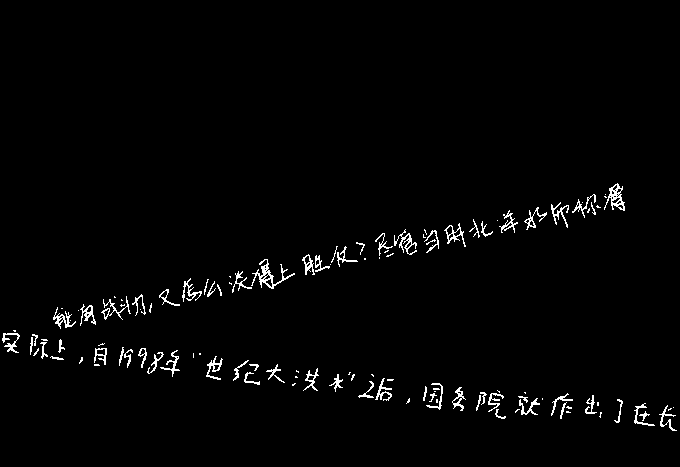 能用战功,又怎么谈得上胜仗?尽管当时北洋水师称得
实际上,自1998年“世纪大洪水”之后,国务院就作出了在长